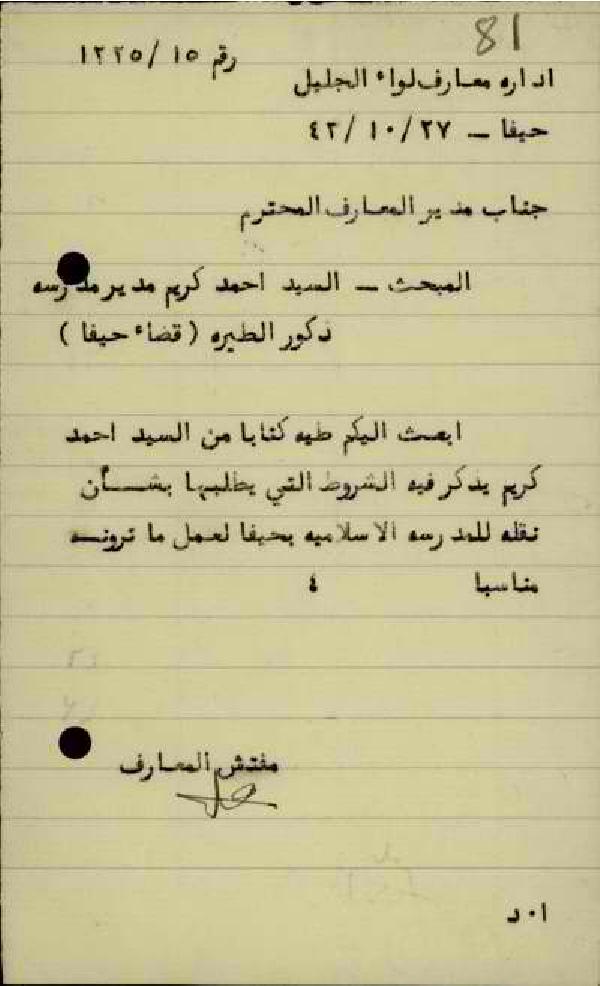 81
رقم ١٥/ ١٢٢٥
اداره معارف لواء الجليل
حيفا – ٢٧/ ١٠/ ٤٢
جناب مدير المعارف المحترم
المبحث – السيد احمد كريم مدير مدرسه
ذكور الطيره ( قضاء حيفا )
ابعث اليكم طيه كتابا من السيد احمد
كريم يذكر فيه الشروط التي يطلبها بشــأن
نقله للمدرسه الاسلاميه بحيفا لعمل ما ترونــه
مناسبا ٤
مفتش المعارف
ا٠ د